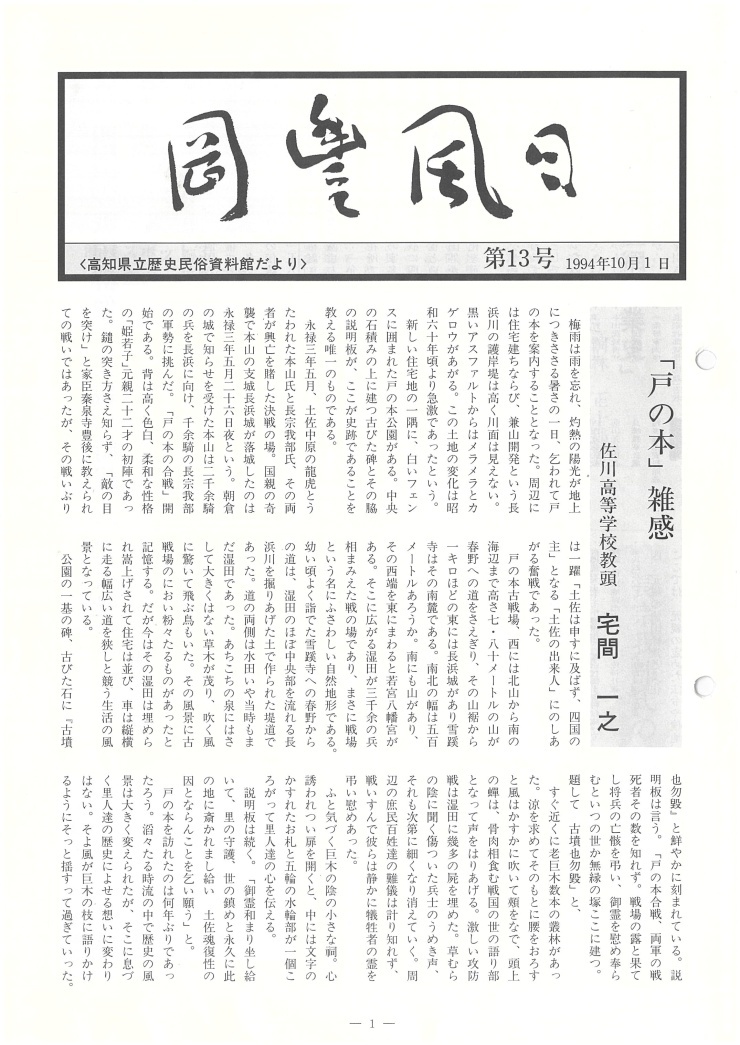 岡豊風日
〈高知県立歴史民俗資料館だより〉
第13号 1994年10月1日
「戸の本」雑感
佐川高等学校教頭 宅間 一之
梅雨は雨を忘れ、灼熱の陽光が地上
につきささる暑さの一日、乞われて戸
の本を案内することとなった。周辺に
は住宅建ちならび、兼山開発という長
浜川の護岸堤は高く川面は見えない。
黒いアスファルトからはメラメラとカ
ゲロウがあがる。この土地の変化は昭
和六十年頃より急激であったという。
新しい住宅地の一隅に、白いフェン
スに囲まれた戸の本公園がある。中央
の石積みの上に建つ古びた碑とその脇
の説明板が、ここが史跡であることを
教える唯一のものである。
永禄三年五月、土佐中原の龍虎とう
たわれた本山氏と長宗我部氏、その両
者が興亡を賭した決戦の場。国親の奇
襲で本山の支城長浜城が落城したのは
永禄三年五月二十六日夜という。朝倉
の城で知らせを受けた本山は二千余騎
の兵を長浜に向け、千余騎の長宗我部
の軍勢に挑んだ。「戸の本の合戦」開
始である。背は高く色白、柔和な性格
の「姫若子」元親二十二才の初陣であっ
た。鑓の突き方さえ知らず、「敵の目
を突け」と家臣秦泉寺豊後に教えられ
ての戦いではあったが、その戦いぶり
は一躍「土佐は申すに及ばず、四国の
主」となる「土佐の出来人」にのしあ
がる奮戦であった。
戸の本古戦場、西には北山から南の
海辺まで高さ七・八十メートルの山が
春野への道をさえぎり、その山裾から
一キロほどの東には長浜城があり雪蹊
寺はその南麓である。南北の幅は五百
メートルあろうか。南にも山があり、
その西端を東にまわると若宮八幡宮が
ある。そこに広がる湿田が三千余の兵
相まみえた戦の場であり、まさに戦場
という名にふさわしい自然地形である。
幼い頃よく詣でた雪蹊寺への春野から
の道は、湿田のほぼ中央部を流れる長
浜川を掘りあげた土で作られた堤道で
あった。道の両側は水田いや当時もま
だ湿田であった。あちこちの泉にはさ
して大きくはない草木が茂り、吹く風
に驚いて飛ぶ鳥もいた。その風景に古
戦場のにおい粉々たるものがあったと
記憶する。だが今はその湿田は埋めら
れ嵩上げされて住宅は並び、車は縦横
に走る幅広い道を狭しと競う生活の風
景となっている。
公園の一基の碑、古びた石に『古墳
也勿毀』と鮮やかに刻まれている。説
明板は言う。「戸の本合戦、両軍の戦
死者その数を知れず。戦場の露と果て
し将兵の亡骸を弔い、御霊を慰め奉ら
むといつの世か無縁の塚ここに建つ。
題して 古墳也勿毀」と、
すぐ近くに老巨木数本の叢林があっ
た。涼を求めてそのもとに腰をおろす
と風はかすかに吹いて頬をなで、頭上
の蟬は、骨肉相食む戦国の世の語り部
となって声をはりあげる。激しい攻防
戦は湿田に幾多の屍を埋めた。草むら
の陰に聞く傷ついた兵士のうめき声、
それも次第に細くなり消えていく。周
辺の庶民百姓達の難儀は計り知れず、
戦いすんで彼らは静かに犠牲者の霊を
弔い慰めあった。
ふと気づく巨木の陰の小さな祠。心
誘われつい扉を開くと、中には文字の
かすれたお札と五輪の水輪部が一個こ
ろがって里人達の心を伝える。
説明板は続く。「御霊和まり坐し給
いて、里の守護、世の鎮めと永久に此
の地に斎かれまし給い 土佐魂復性の
因とならんことを乞い願う」と。
戸の本を訪れたのは何年ぶりであっ
たろう。滔々たる時流の中で歴史の風
景は大きく変えられたが、そこに息づ
く里人達の歴史によせる想いに変わり
はない。そよ風が巨木の枝に語りかけ
るようにそっと揺すって過ぎていった。
― 1 ―